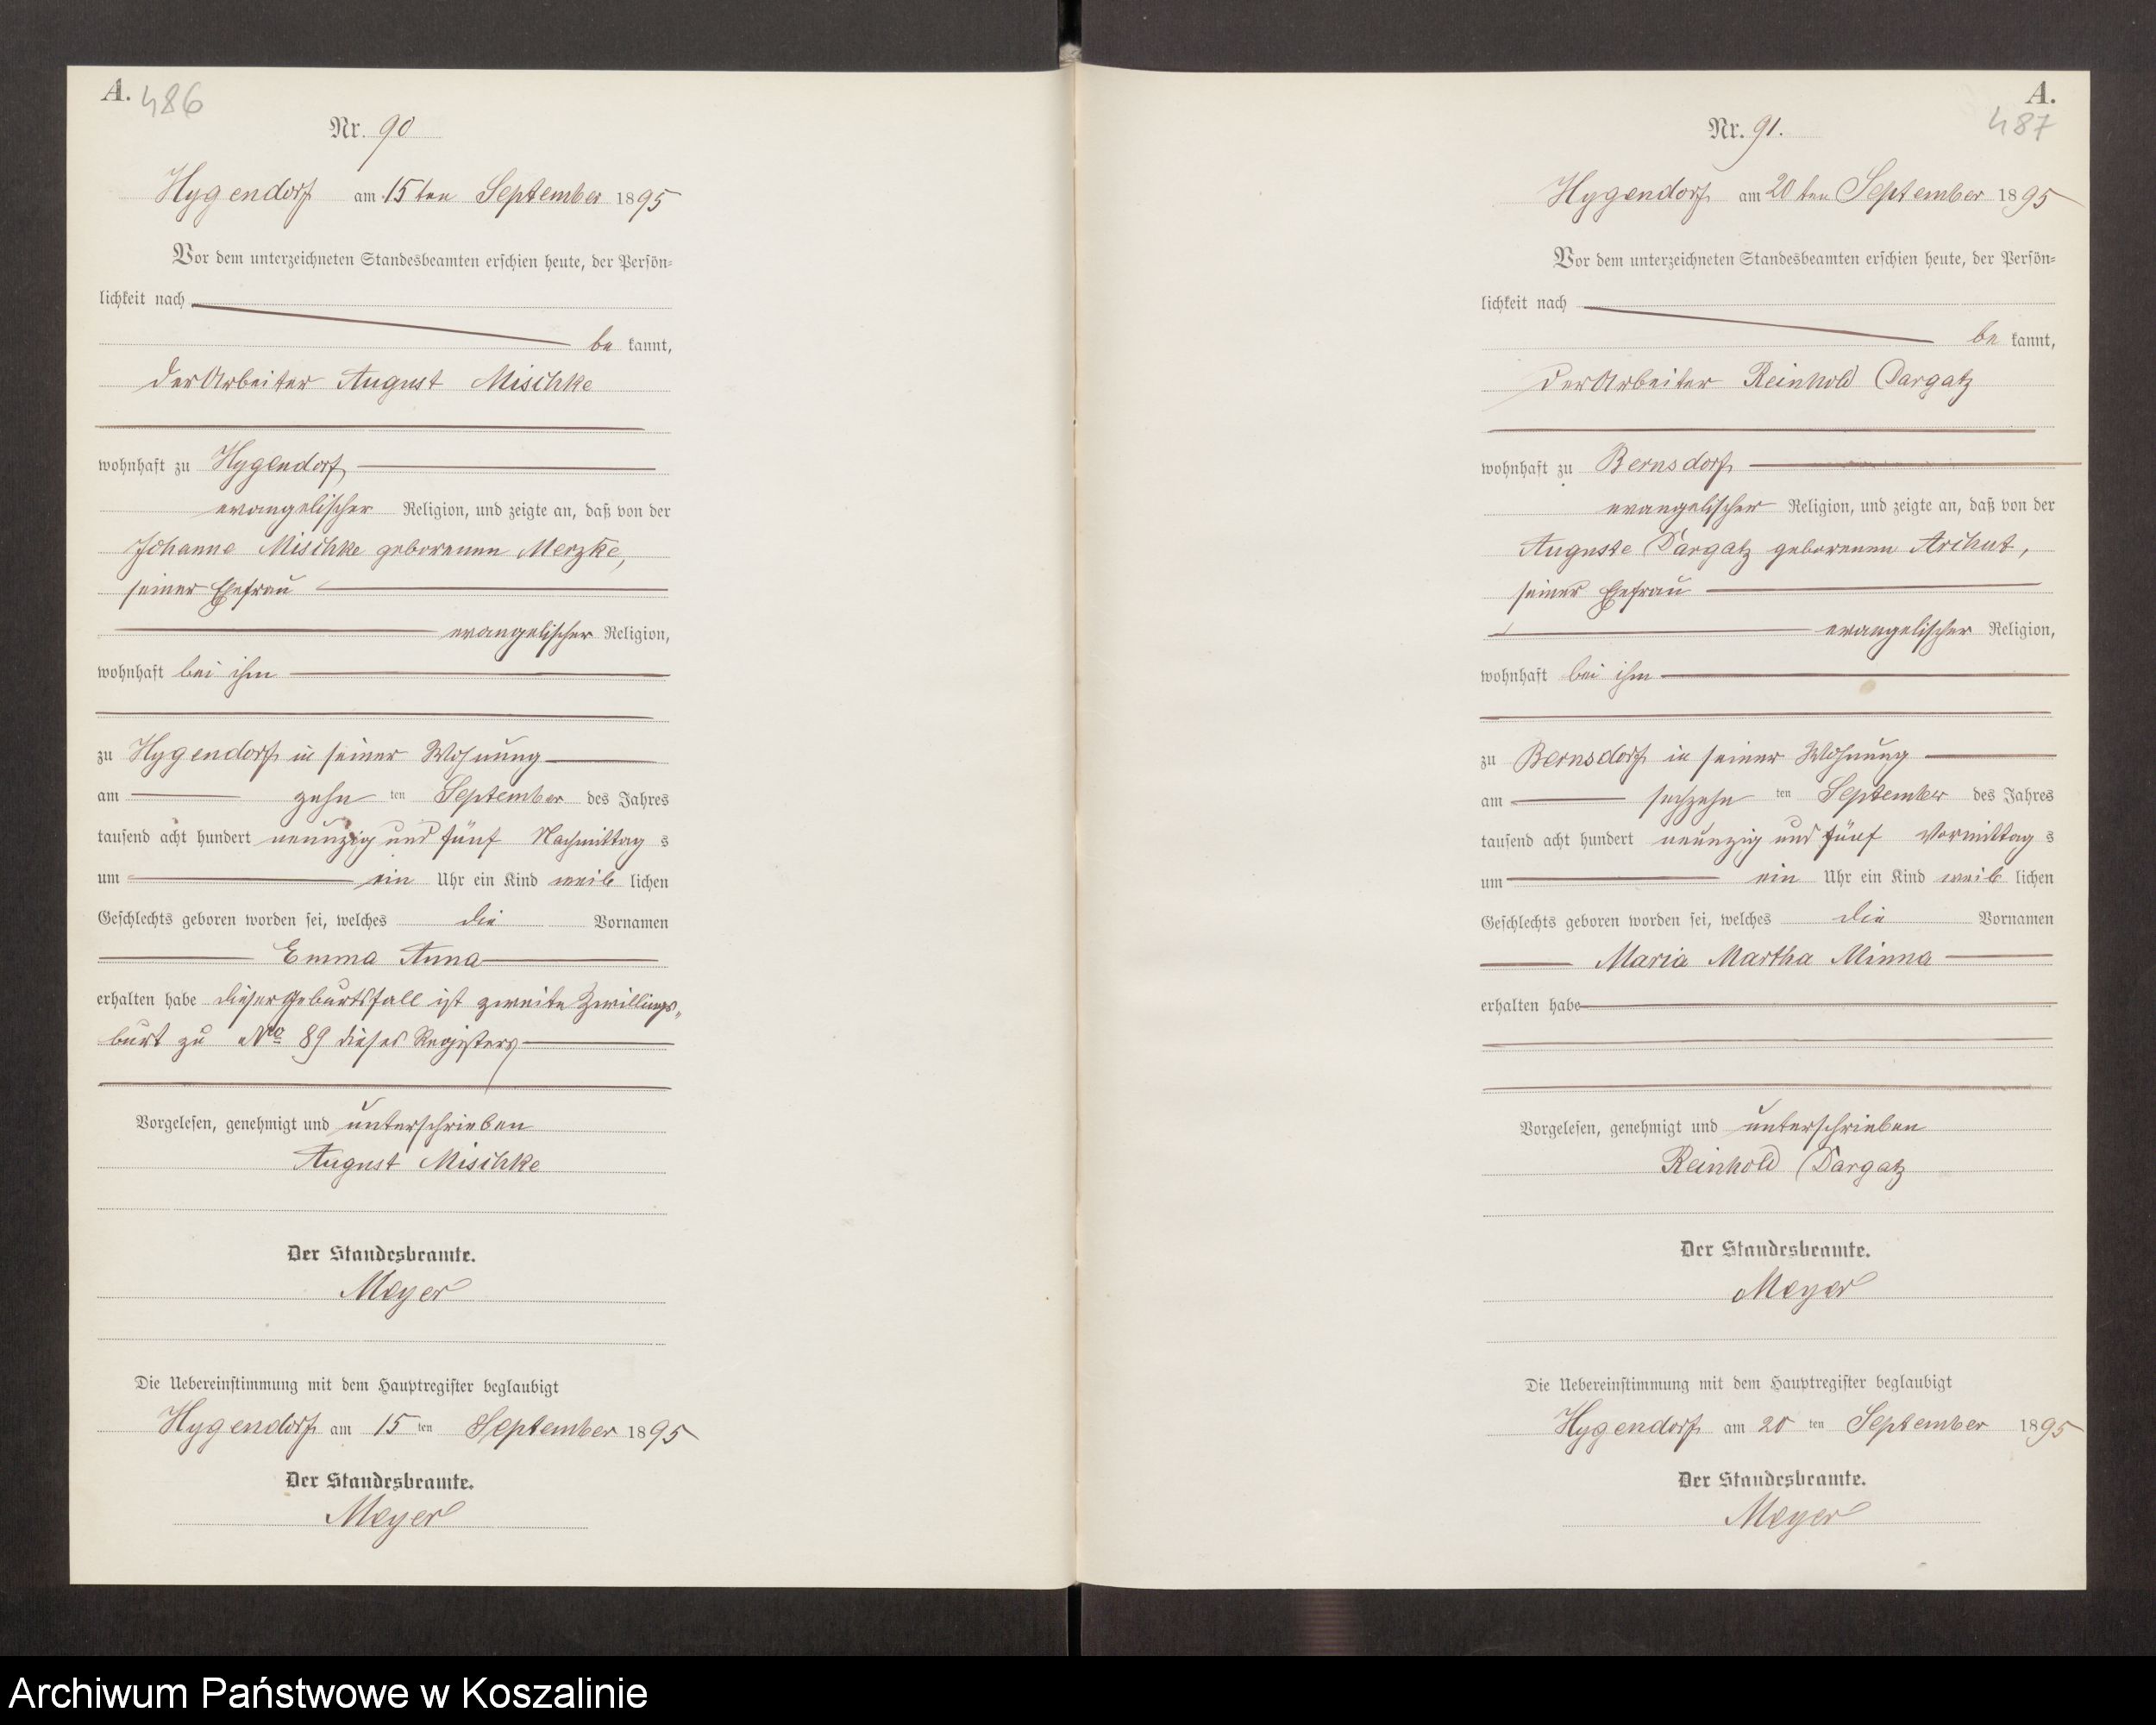 A.
486
Nr. 90
Hygendorf am 15ten September 1895
Vor dem unterzeichneten Standesbeamten erschien heute, der Persön-
lichkeit nach
be kannt,
der Arbeiter August Mischke
wohnhaft zu Hygendorf
evangelischer Religion, und zeigte an, daß von der
Johanne Mischke geborenen Merzke,
seiner Ehefrau
evangelischer Religion,
wohnhaft bei ihm
zu Hygendorf in seiner Wohnung
am zehn ten September des Jahres
tausend acht hundert neunzig und fünf Nachmittag s
um ein Uhr ein Kind weib lichen
Geschlechts geboren worden sei, welches die Vornamen
Emma Anna
erhalten habe dieser Geburtsfall ist zweite Zwillings-
burt zu No 89 dieses Registers
Vorgelesen, genehmigt und unterschrieben
August Mischke
Der Standesbeamte.
Meyer
Die Uebereinstimmung mit dem Hauptregister beglaubigt
Hygendorf am 15 ten September 1895
Der Standesbeamte.
Meyer
A.
487
Nr. 91.
Hygendorf am 20ten September 1895
Vor dem unterzeichneten Standesbeamten erschien heute, der Persön-
lichkeit nach
be kannt,
der Arbeiter Reinhold Dargatz
wohnhaft zu Bernsdorf
evangelischer Religion, und zeigte an, daß von der
Auguste Dargatz geborenen Archut,
seiner Ehefrau
evangelischer Religion,
wohnhaft bei ihm
zu Bernsdorf in seiner Wohnung
am sechzehn ten September des Jahres
tausend acht hundert neunzig und fünf Vormittag s
um ein Uhr ein Kind weib lichen
Geschlechts geboren worden sei, welches die Vornamen
Maria Martha Minna
erhalten habe
Vorgelesen, genehmigt und unterschrieben
Reinhold Dargatz
Der Standesbeamte.
Meyer
Die Uebereinstimmung mit dem Hauptregister beglaubigt
Hygendorf am 20 ten September 1895
Der Standesbeamte.
Meyer
Archiwum Państwowe w Koszalinie